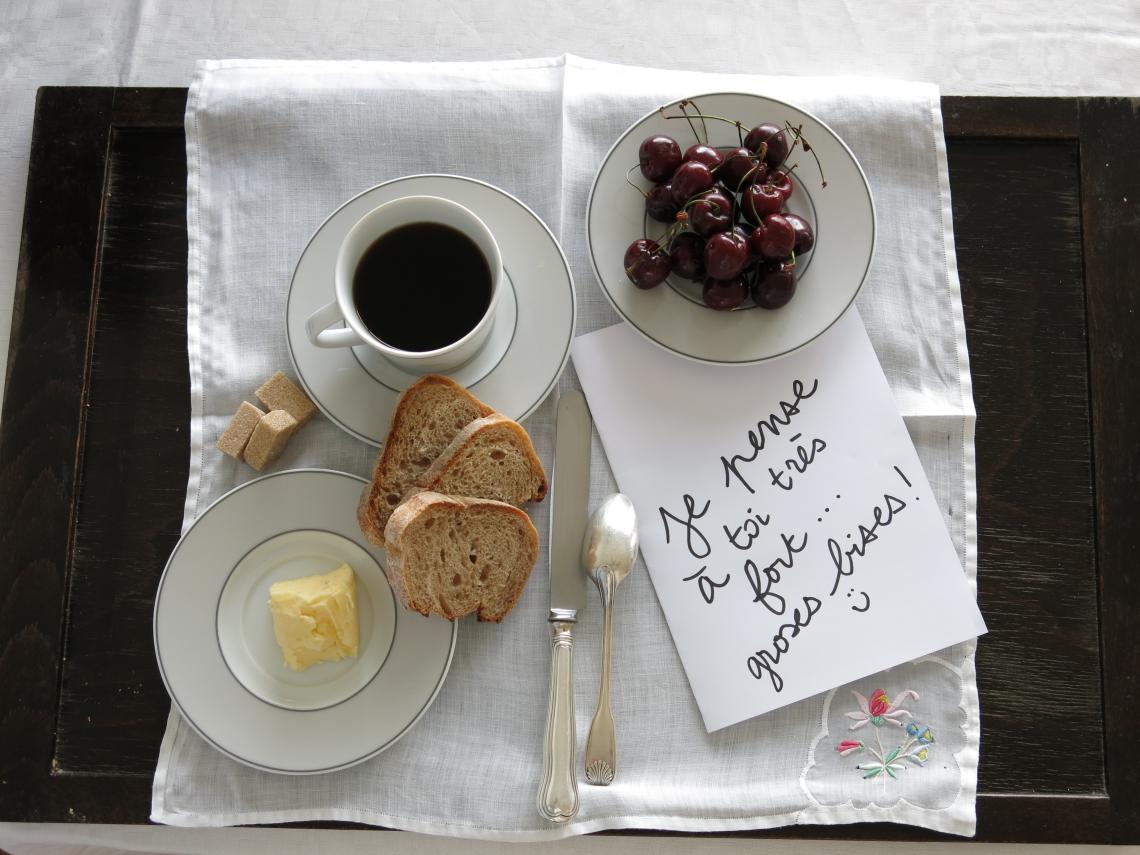 Je pense
à toi très
fort...
groses bises!